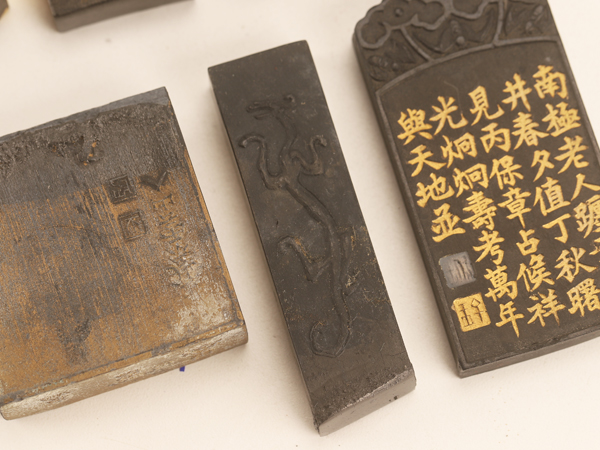 南極老人躔
井春夕值丁秋曙
見丙保章占候祥
光炯炯壽考萬年
與天地並